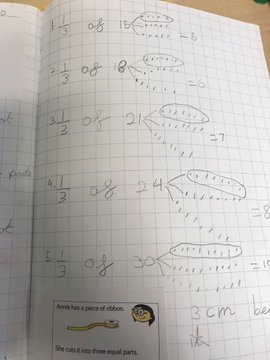 1. 1/3 of 15 = 5
2. 1/3 of 18 = 6
3. 1/3 of 21 = 7
4. 1/3 of 24 = 8
5. 1/3 of 30 = 10
Annie has a piece of ribbon.
She cuts it into three equal parts.
3 cm
it